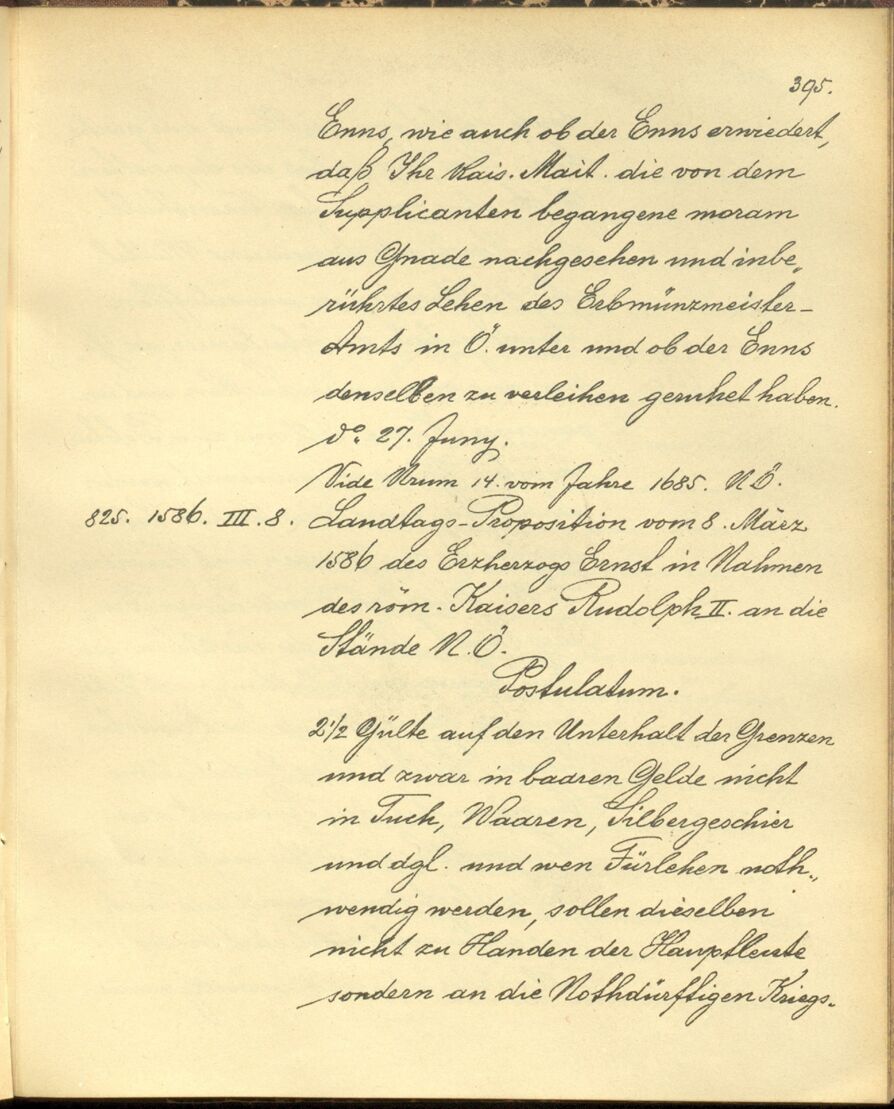 395.
Enns, wie auch ob der Enns erwiedert,
daß Ihr Kais. Mait. die von dem
Supplicanten begangene moram
aus Gnade nachgesehen und inbe„
rührtes Lehen des Erbmünzmeister-
Amts in Ö. unter und ob der Enns
denselben zu verleihen geruhet haben.
do. 27. Juny.
Vide Nrum 14. vom Jahre 1685. N.Ö.
825. 1586. III. 8. Landtags-Proposition vom 8. März
1586 des Erzherzogs Ernst in Nahmen
des röm. Kaisers Rudolph II. an die
Stände N.Ö.
Postulatum.
2 1/2 Gülte auf den Unterhalt der Grenzen
und zwar in baaren Gelde nicht
in Tuch, Waaren, Silbergeschier
und dgl. und wen Fürlehen noth„
wendig werden, sollen dieselben
nicht zu Handen der Hauptleute
sondern an die Nothdürftigen Kriegs-